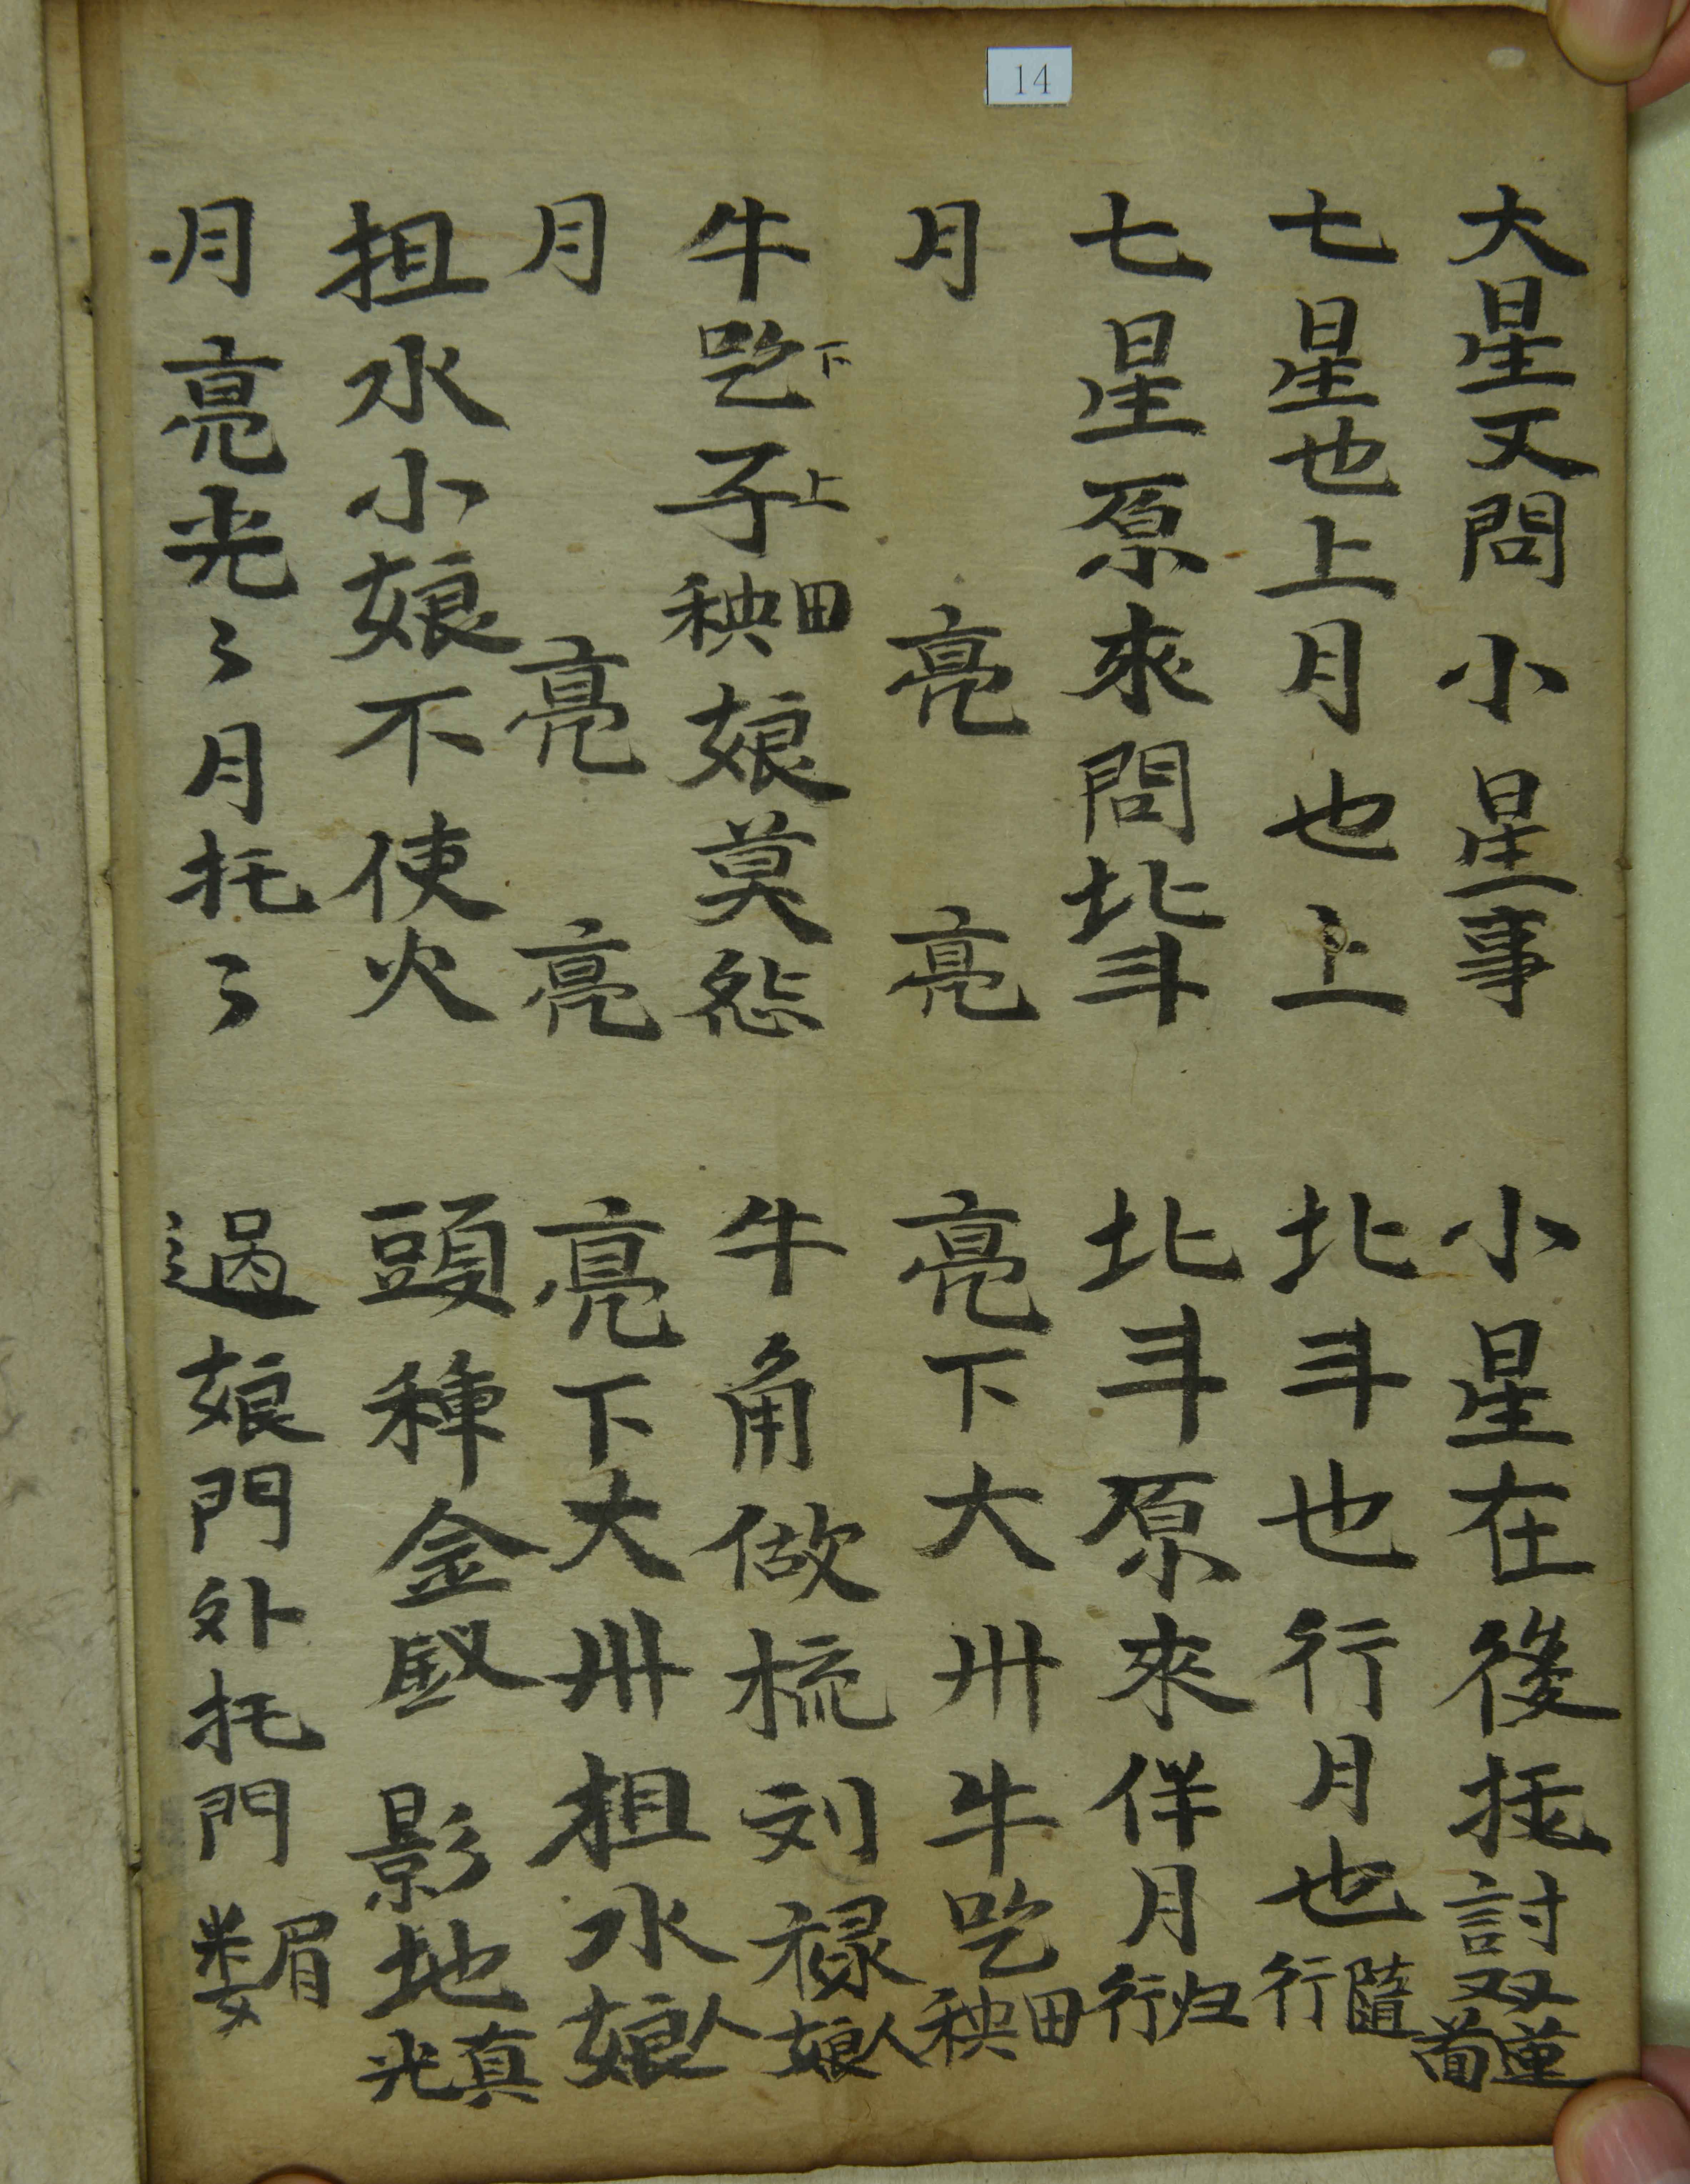 14
大星又問小星事 小星在後抂討双蓮蔔
七星也上月也上 北斗也行月也隨行
七星原來問北斗 北斗原來伴月归行
月亮亮 亮下大卅牛吃田秧
牛吃下子上田秧娘莫怨 牛角做梳刘禄人娘
月亮亮 亮下大卅担水人娘
担水小娘不使火 頭種金 影地真光
月亮光々月托々 過娘門外托門眉